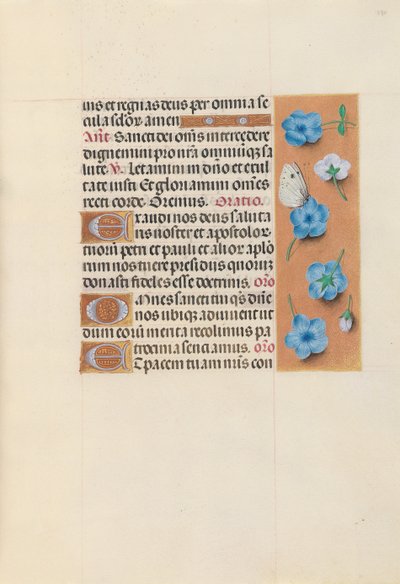 uis et regnas deus per omnia se
cula sclor amen
Ant Sancti dei oms intercedere
dignemini pro nra omniuq; sa
lute V Letamini in dno et exul
tate iusti Et gloriamini omes
recti corde Oremus. Oratio.
Exaudi nos deus saluta
ris noster et apostolor
tuoru petri et pauli et alior aplo
rum nos tuere presidijs quoruz
donasti fideles esse doctrinis. oro
Omnes sancti tui qs dne
nos ubiq; adiuuent ut
dum eoru merita recolimus pa
trocinia senciamus. oro
Et pacem tuam nris con